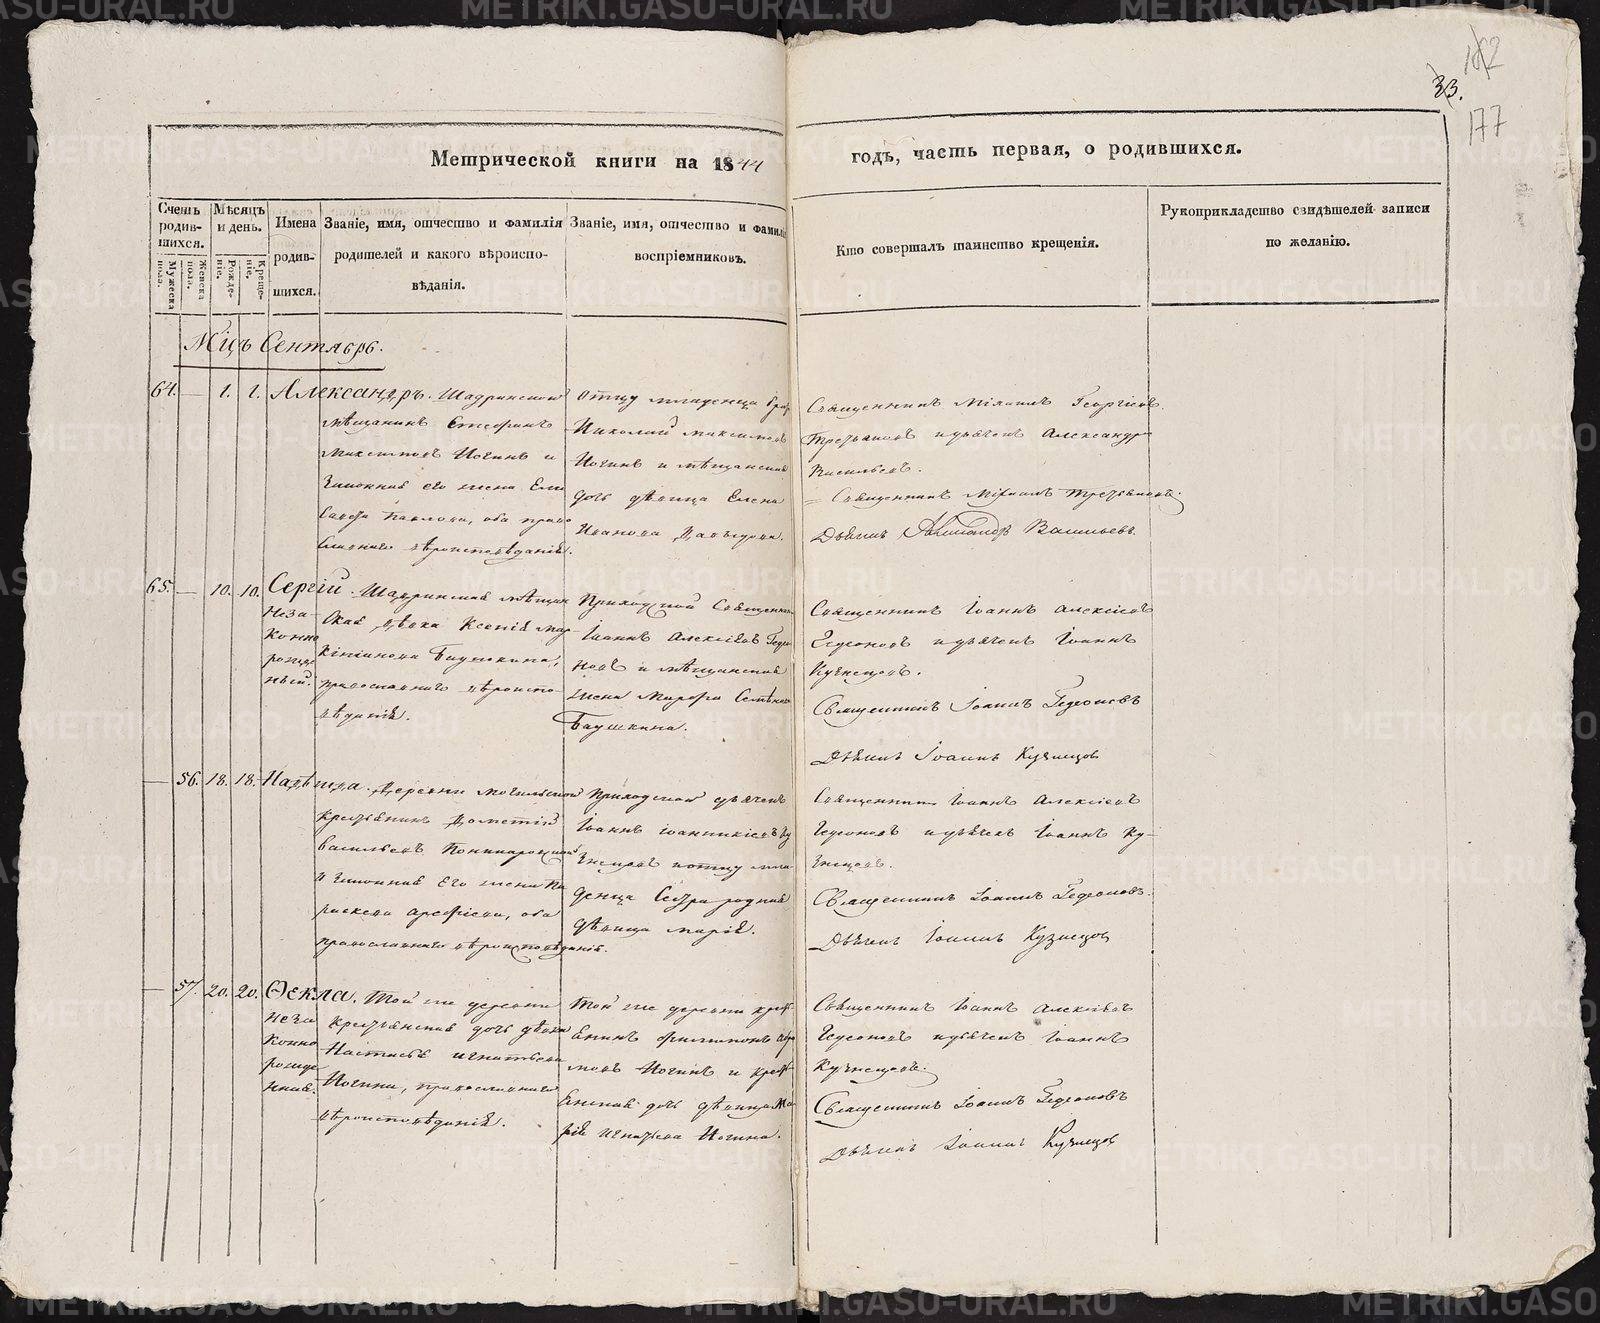 162
33.
177
Метрической книги на 1844 годъ, часть первая, о родившихся.
Счетъ родив-шихся.
Мужеска пола.
Женска пола.
Мѣсяцъ и день.
Рожде-ніе.
Креще-ніе.
Имена родив-шихся.
Званіе, имя, отчество и фамилія
родителей и какого вѣроиспо-
вѣданія.
Званіе, имя, отчество и фамилія
воспріемниковъ.
Кто совершалъ таинство крещенія.
Рукоприкладство свидѣтелей записи
по желанію.
Мцъ Сентябрь.
64. — 1. 1. Александръ.
Шадринской
мѣщанинъ Стефанъ
Максимовъ Ногинъ и
законная его жена Ели
савета Павлова, оба право
славнаго вѣроисповѣданія.
Отцу младенца братъ
Николай Максимовъ
Ногинъ и мѣщанская
дочь дѣвица Елена
Иванова Давыдова.
Священникъ Михаилъ Георгіевъ
Третьяковъ и дьячекъ Александръ
Васильевъ.
Священникъ Михаилъ Третьяковъ.
Дьячекъ Александръ Васильевъ.
65. — 10. 10. Сергій.
Неза-
конно
рожде
ный.
Шадринская мѣщан
ская дѣвка Ксенія Мар-
кіянова Баушкина,
православнаго вѣроиспо-
вѣданія.
Приходской Священникъ
Іоаннъ Алексіевъ Гедео
новъ и мѣщанская
жена Марфа Семенова
Баушкина.
Священникъ Іоаннъ Алексіевъ
Гедеоновъ и дьячекъ Іоаннъ
Кузнецовъ.
Священникъ Іоаннъ Гедеоновъ
Дьячекъ Іоаннъ Кузнецовъ
— 56. 18. 18. Надѣжда.
Деревни Могильской
крестьянинъ Дометій
Васильевъ
и законная его жена Па
раскева Арефіева, оба
православнаго вѣроисповѣданія.
Приходской дьячекъ
Іоаннъ Іоанникіевъ Ку
знецовъ и отцу мла
денца Сестра родная
дѣвица Марія.
Священникъ Іоаннъ Алексіевъ
Гедеоновъ и дьячекъ Іоаннъ Ку-
знецовъ.
Священникъ Іоаннъ Гедеоновъ.
Дьячекъ Іоаннъ Кузнецовъ
— 57. 20. 20. Ѳекла.
неза
конно
рожде
нная.
Той же деревни
крестьянская дочь дѣвка
Настасья Игнатьева
Ногина, православнаго
вѣроисповѣданія.
Той же деревни крест
янинъ Филимонъ
Ногинъ и крест
янская дочь дѣвица Ма
рія Игнатьева Ногина.
Священникъ Іоаннъ Алексіевъ
Гедеоновъ и дьячекъ Іоаннъ
Кузнецовъ.
Священникъ Іоаннъ Гедеоновъ
Дьячекъ Іоаннъ Кузнецовъ
METRIKI.GASO-URAL.RU